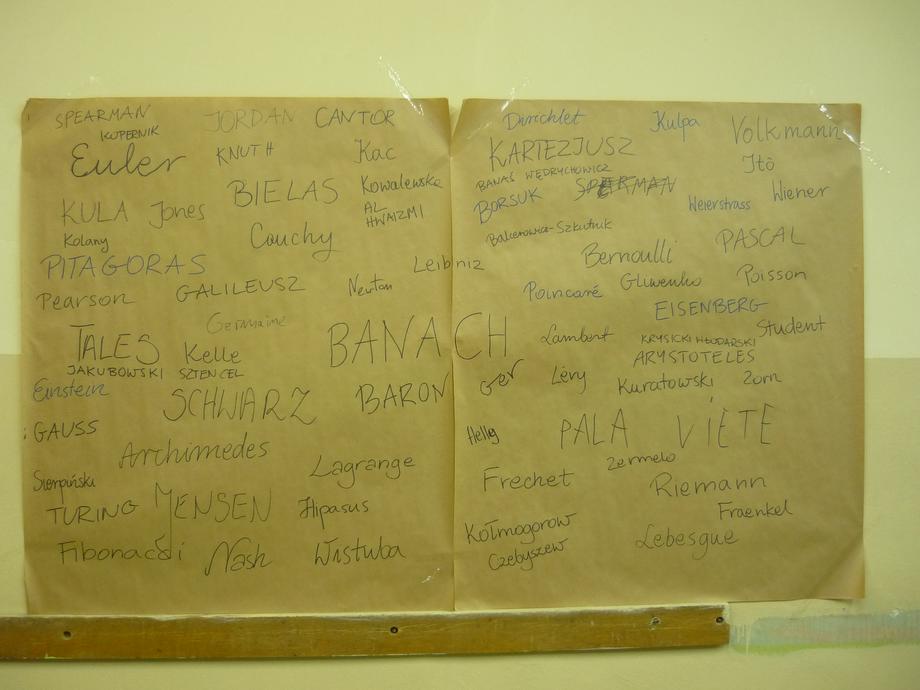 SPEARMAN
KOPERNIK
JORDAN
CANTOR
Euler
KNUTH
Kac
BIELAS
Kowalewska
AL
HWAIZMI
KULA
Jones
Kolany
Couchy
PITAGORAS
Leibniz
Pearson
GALILEUSZ
Newton
Germaine
TALES
Kelle
BANACH
JAKUBOWSKI
SZTENCEL
Einstein
SCHWARZ
BARON
GAUSS
Archimedes
Lagrange
Sierpiński
TURING
JENSEN
Hipasus
Fibonacci
Nash
Wistuba
Dirichlet
Kulpa
Volkmann
KARTEZJUSZ
Itô
BANAŚ WĘDRYCHOWICZ
SPEARMAN
BORSUK
Weierstrass
Wiener
Balcerowia-Szkutnik
Bernoulli
PASCAL
Poincaré
Gliwenko
Poisson
EISENBERG
Lambert
KRYSICKI WŁODARSKI
Student
ARYSTOTELES
Ger
Lévy
Kuratowski
Zorn
Helly
PALA
VIETE
Zermelo
Frechet
Riemann
Fraenkel
Kołmogorow
Lebesgue
Czebyszew